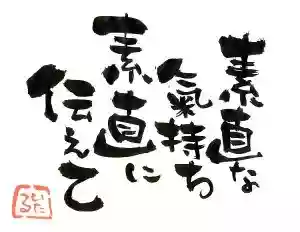 素直な
人氣持ち
素直に
伝えて